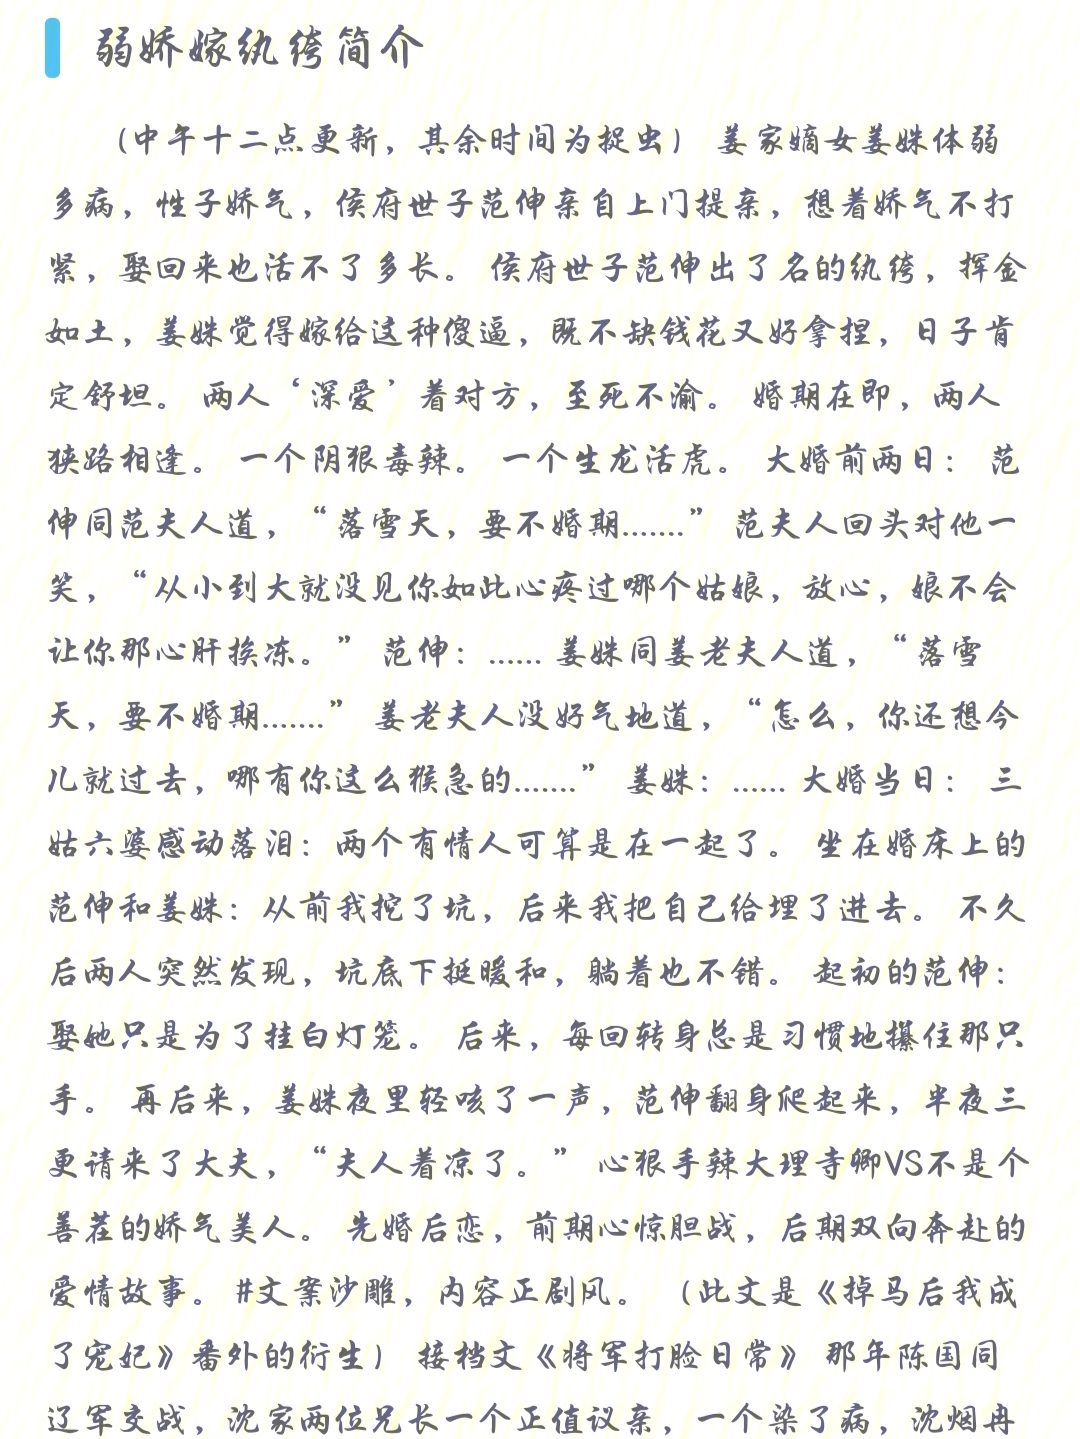 弱娇嫁纨绔简介
（中午十二点更新，其余时间为捉虫） 姜家嫡女姜姝体弱
多病，性子娇气，侯府世子范伸亲自上门提亲，想着娇气不打
紧，娶回来也活不了多长。 侯府世子范伸出了名的纨绔，挥金
如土，姜姝觉得嫁给这种傻逼，既不缺钱花又好拿捏，日子肯
定舒坦。 两人‘深爱’着对方，至死不渝。 婚期在即，两人
狭路相逢。 一个阴狠毒辣。 一个生龙活虎。 大婚前两日： 范
伸同范夫人道，“落雪天，要不婚期.......” 范夫人回头对他一
笑，“从小到大就没见你如此心疼过哪个姑娘，放心，娘不会
让你那心肝挨冻。” 范伸：...... 姜姝同姜老夫人道，“落雪
天，要不婚期.......” 姜老夫人没好气地道，“怎么，你还想今
儿就过去，哪有你这么猴急的.......” 姜姝：...... 大婚当日： 三
姑六婆感动落泪：两个有情人可算是在一起了。 坐在婚床上的
范伸和姜姝：从前我挖了坑，后来我把自己给埋了进去。 不久
后两人突然发现，坑底下挺暖和，躺着也不错。 起初的范伸：
娶她只是为了挂白灯笼。 后来，每回转身总是习惯地攥住那只
手。 再后来，姜姝夜里轻咳了一声，范伸翻身爬起来，半夜三
更请来了大夫，“夫人着凉了。” 心狠手辣大理寺卿VS不是个
善茬的娇气美人。 先婚后恋，前期心惊胆战，后期双向奔赴的
爱情故事。 #文案沙雕，内容正剧风。 （此文是《掉马后我成
了宠妃》番外的衍生） 接档文《将军打脸日常》 那年陈国同
辽军交战，沈家两位兄长一个正值议亲，一个染了病，沈烟冉